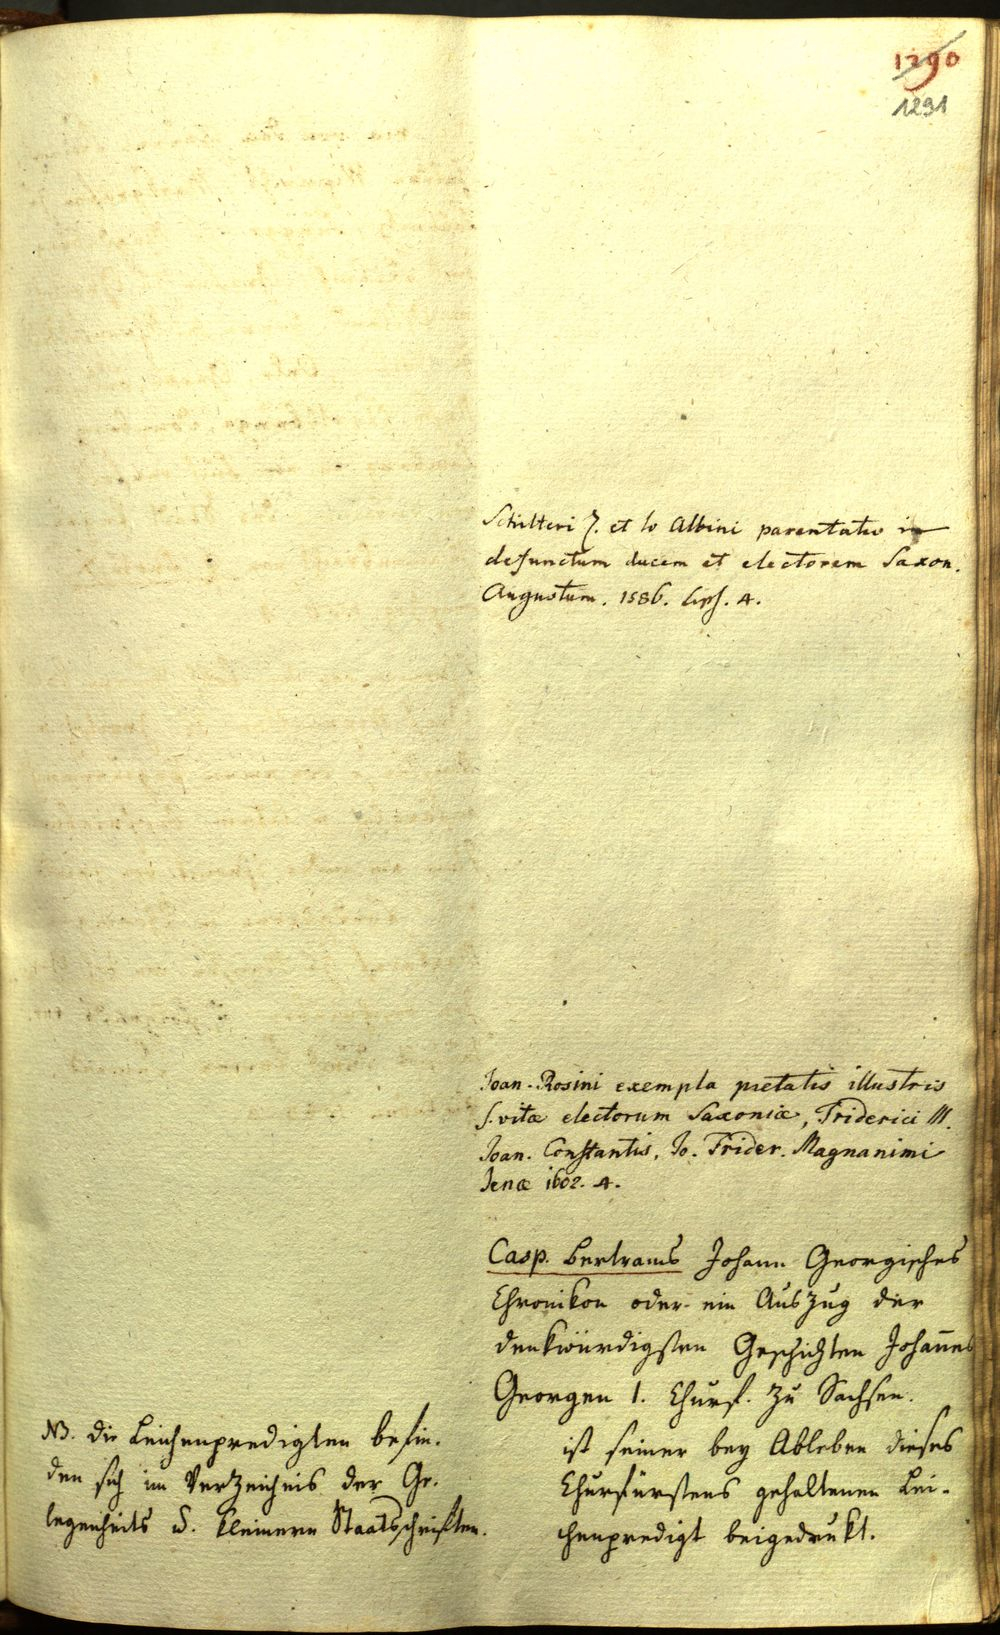 1290
1291
Schilteri Z. et Io Albini parentatio in
defunctum ducem et electorem Saxon.
Augustum. 1586. Lips. 4.
Joan. Rosini exempla pietatis illustris
s. vitæ electorum Saxoniæ, Friderici III.
Joan. Constantis, Jo. Frider. Magnanimi
Jenæ 1602. 4.
Casp. Bertrams Johann Georgisches
Chronikon oder ein Auszug der
denkwürdigsten Geschichten Johannes
Georgen 1. Churf. zu Sachsen.
ist seiner bey Ableben dieses
Churfürstens gehaltenen Lei-
chenpredigt beigedrukt.
NB. die Leichenpredigten befin-
den sich im Verzeichnis der Ge-
legenheits u. kleinern Staatsschriften.